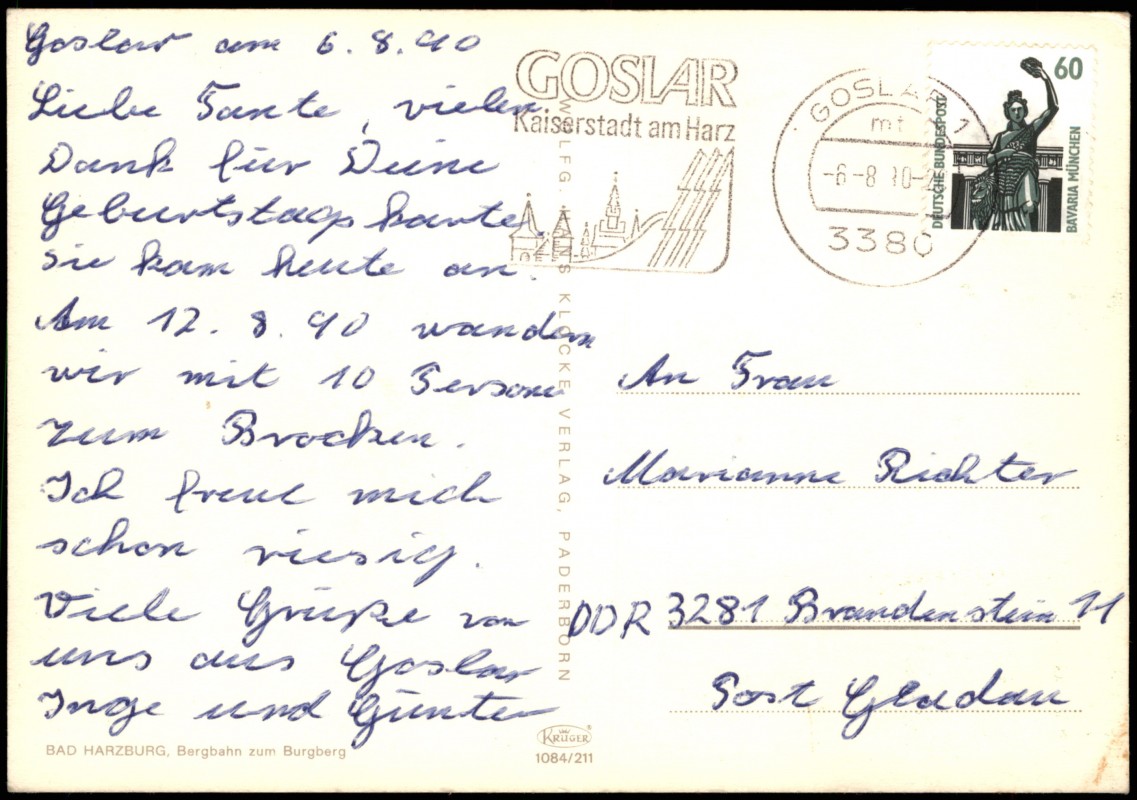 Goslar am 6.8.90
Liebe Tante, vielen
Dank für Deine
Geburtstagskarte.
Sie kam heute an.
Am 12.8.90 wandern
wir mit 10 Personen
zum Brocken.
Ich freue mich
schon riesig.
Viele Grüße von
uns aus Goslar
Inge und Günter
BAD HARZBURG, Bergbahn zum Burgberg
GOSLAR
Kaiserstadt am Harz
GOSLAR 1
mt
-6-8.90-
3380
60
DEUTSCHE BUNDESPOST
BAVARIA MÜNCHEN
WOLFG. HANS KLOCKE VERLAG, PADERBORN
An Frau
Marianne Richter
DDR 3281 Brandenstein 11
Post Gladau
KRÜGER
1084/211